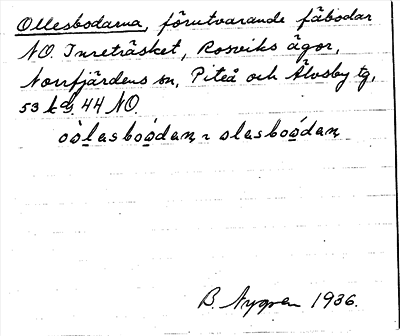 Ollesbodarna, förutvarande fäbodar
NO. Inreträsket, Rosviks ägor,
Norrfjärdens sn, Piteå och Älvsby tg,
53 k d, 44 NO.
oòlasboódan, ~ olasboódan
B. Nygren 1936.